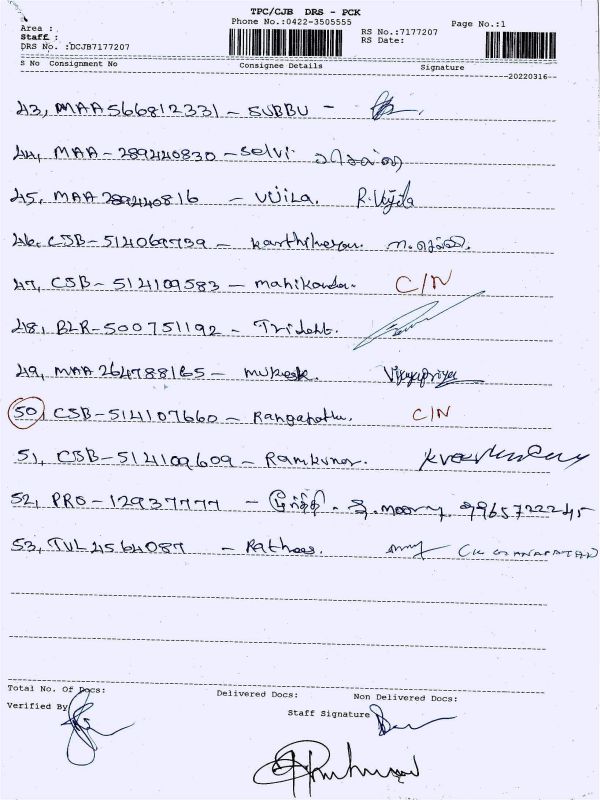 TPC/CJB DRS - PCK
Area :
Phone No.:0422-3505555
Page No.:1
Staff. :
RS No.:7177207
DRS No. :DCJB7177207
RS Date:
S No Consignment No Consignee Details Signature
20220316
43, MAA 566812331 - SUBBU -
44, MAA - 289440830 - Selvi
45, MAA 289440816 - VIJILA. R. Vijila
46, CJB - 514069739 - Karthikeyan.
47, CJB - 514109583 - Manikanda. C/N
48, BLR - 500751192 -
49, MAA 264788165 - Mukesh. Vijayapriya
50, CJB - 514107660 - Ranganathu. C/N
51, CJB - 514109609 - Ramkumar.
52, PRO - 12937777 - மூர்த்தி. 9965722245
53, TVL 4564087 -
Total No. Of Docs: Delivered Docs: Non Delivered Docs:
Verified By
Staff Signature